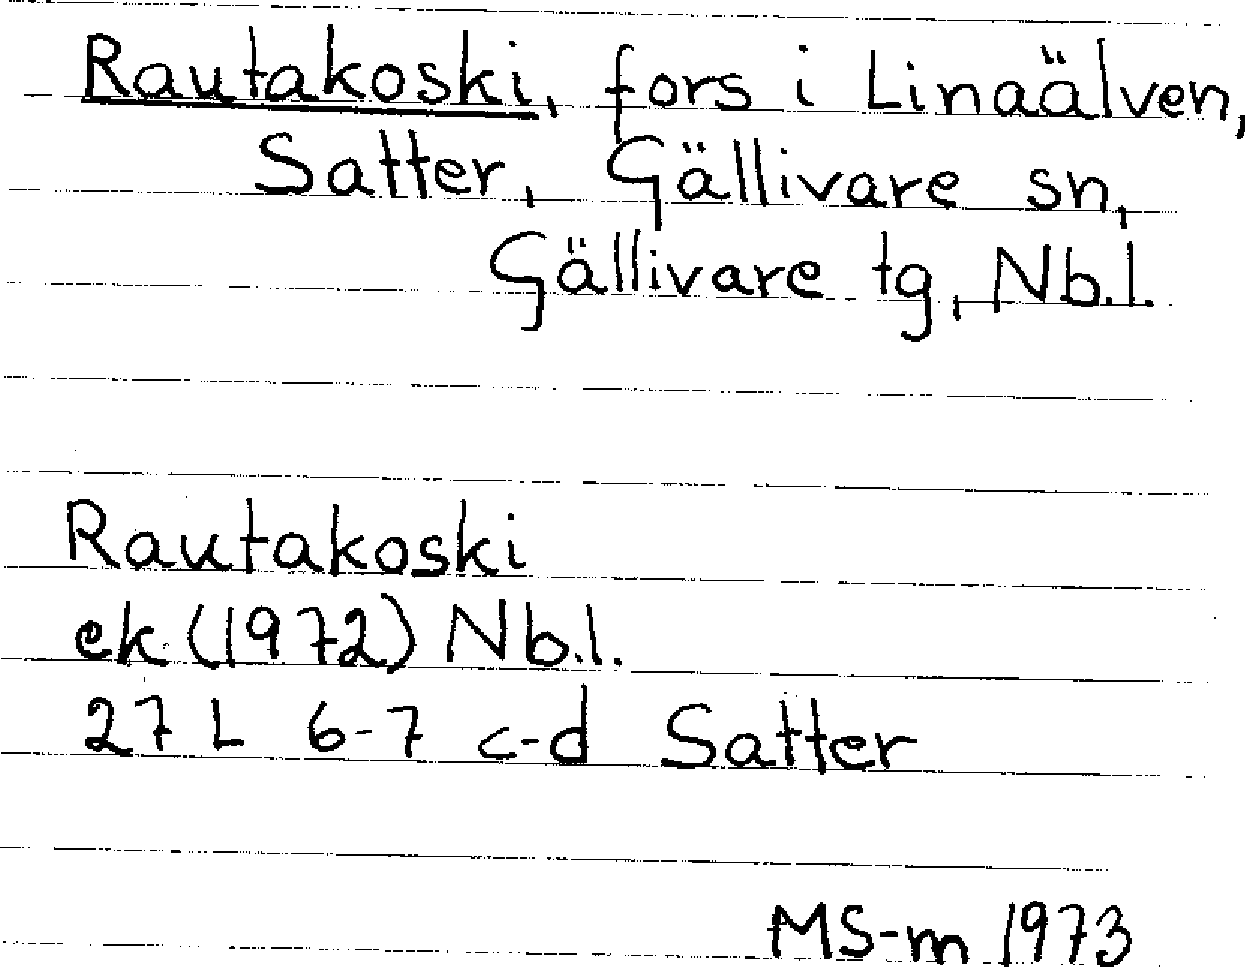 Rautakoski, fors i Linaälven,
Satter, Gällivare sn,
Gällivare tg, Nb.l.
Rautakoski
ek (1972) Nb.l.
27 L 6-7 c-d Satter
MS-m 1973